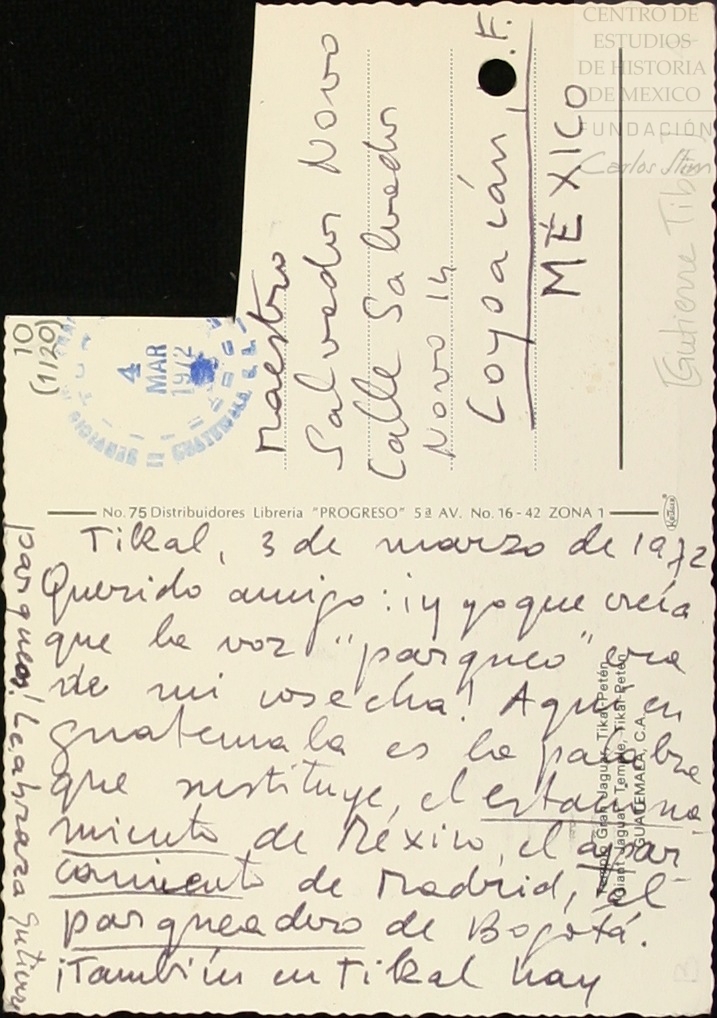 CENTRO DE
ESTUDIOS
DE HISTORIA
DE MEXICO
FUNDACIÓN
Carlos Slim
[Gutierre Tib
10
(1/20)
4
MAR
1972
GUATEMALA
Maestro
Salvador Novo
Calle Salvador
Novo 14
Coyoacán, D.F.
MÉXICO
No. 75 Distribuidores Libreria "PROGRESO" 5ª AV. No. 16-42 ZONA 1
Tikal, 3 de marzo de 1972
Querido amigo: ¡y yo que creía
que la voz "parqueo" era
de mi cosecha! Aquí en
Guatemala es la palabra
que sustituye, el estaciona
miento de México, el apar
camiento de Madrid, el
parqueadero de Bogotá.
¡También en Tikal hay
parqueos! Le abraza Gutierre
Templo Gran Jaguar, Tikal-Petén
Giant Jaguar Temple, Tikal-Petén
GUATEMALA, C.A.